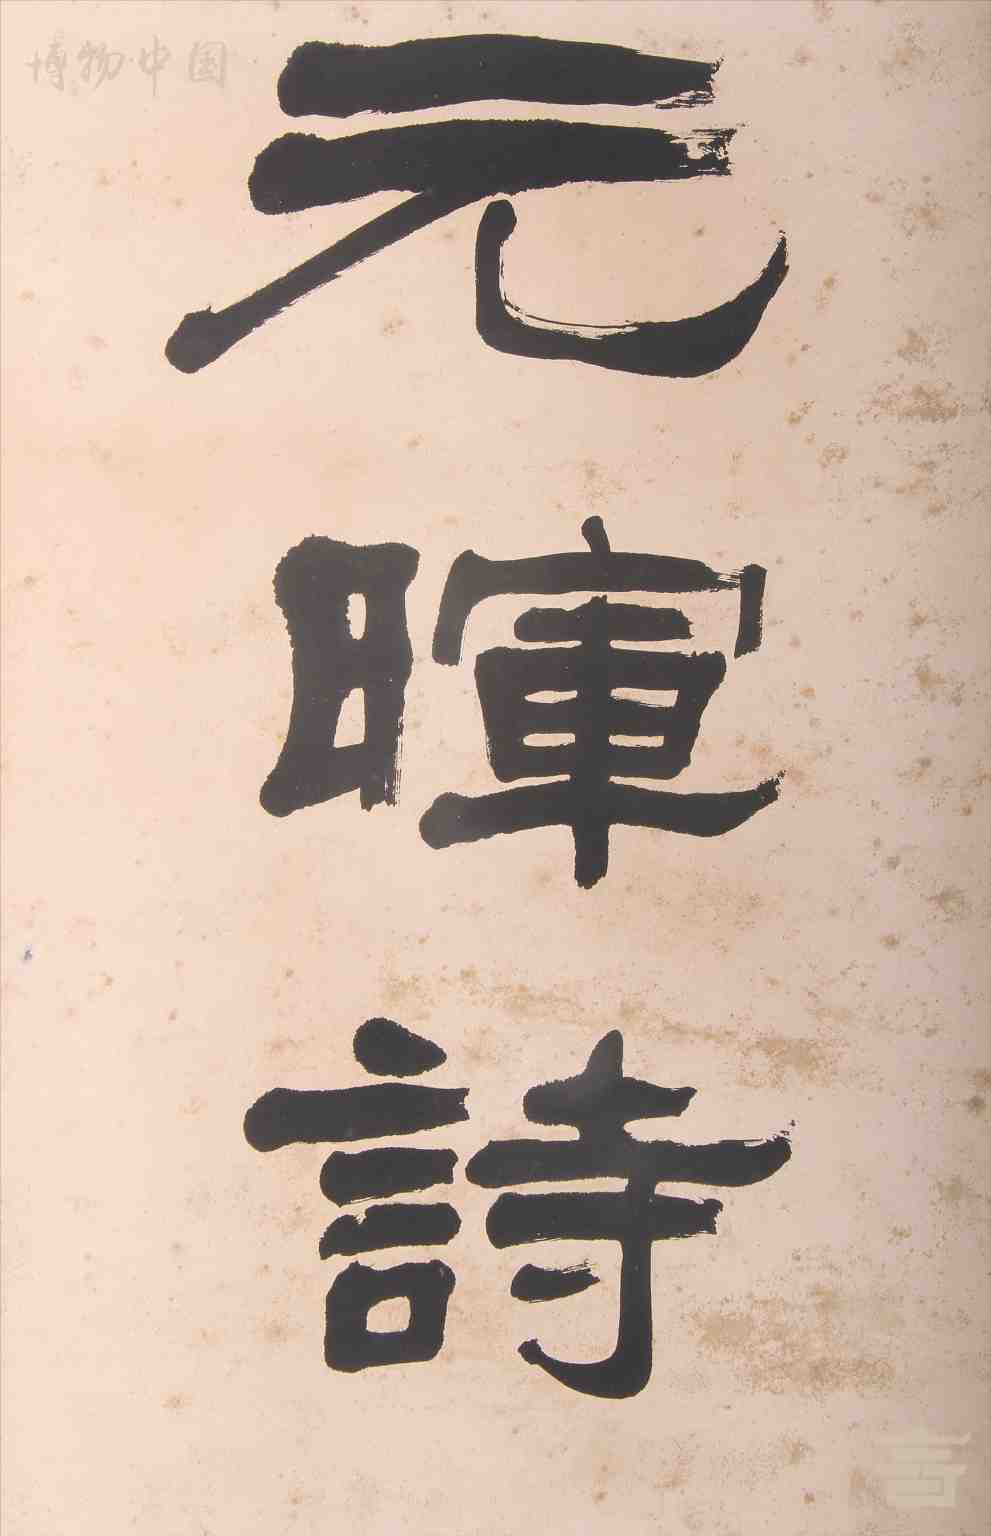 博物中国
元暉詩